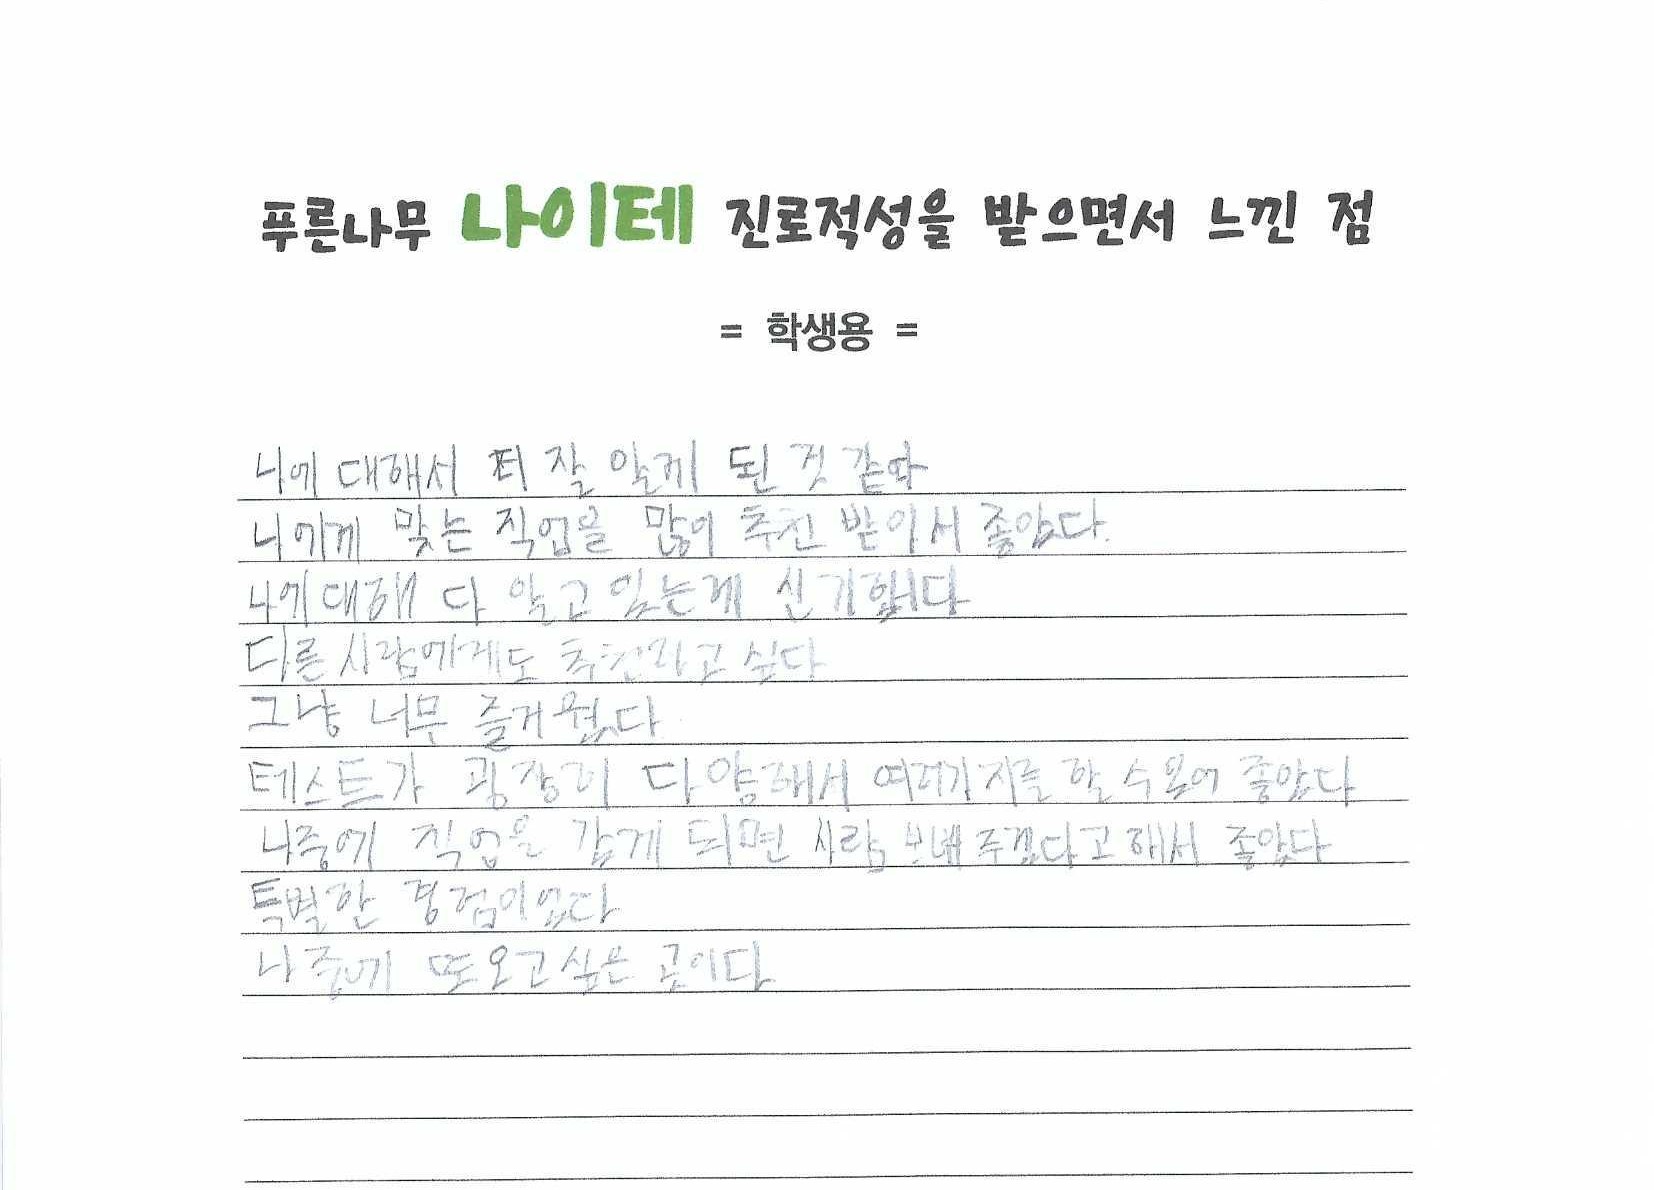 푸른나무 나이테 진로적성을 받으면서 느낀 점
= 학생용 =
나에 대해서 더 잘 알게 된 것 같다
나에게 맞는 직업을 많이 추천 받아서 좋았다.
나에대해 다 알고 있는게 신기했다
다른 사람에게도 추천하고 싶다
그냥 너무 즐거웠다
테스트가 굉장히 다양해서 여러가지를 할 수 있어 좋았다
나중에 직업을 갖게 되면 사람 보내 주겠다고 해서 좋았다
특별한 경험이었다
나중에 또 오고싶은 곳이다